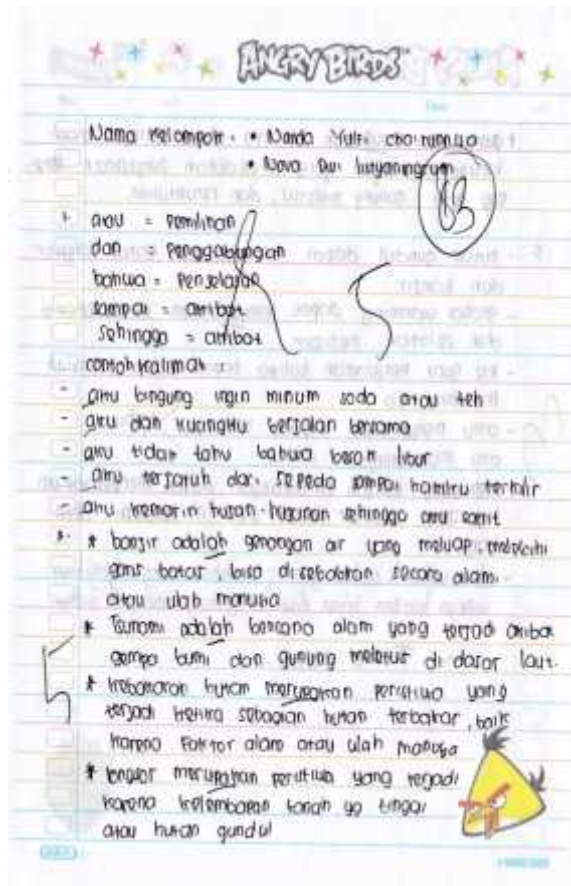 ANGRY BIRDS
Nama Kelompok : • Nanda Yulfi choirunnisa
• Nova Dwi listyaningrum
83
1. atau = Pemilihan
dan = Penggabungan
bahwa = Penjelasan
sampai = akibat
sehingga = akibat
contoh kalimat
- aku bingung ingin minum soda atau teh
- aku dan kucingku berjalan bersama
- aku tidak tahu bahwa besok libur
- aku terjatuh dari sepeda sampai kakiku terkilir
- aku kemarin hujan-hujanan sehingga aku sakit
* banjir adalah genangan air yang meluap, melebihi
garis batas, bisa disebabkan secara alami
atau ulah manusia
* Tsunami adalah bencana alam yang terjadi akibat
gempa bumi dan gunung meletus di dasar laut.
* kebakaran hutan merupakan peristiwa yang
terjadi ketika sebagian hutan terbakar, baik
karena Faktor alam atau ulah manusia
* longsor merupakan peristiwa yang terjadi
karena kelembapan tanah yg tinggi
atau hutan gundul